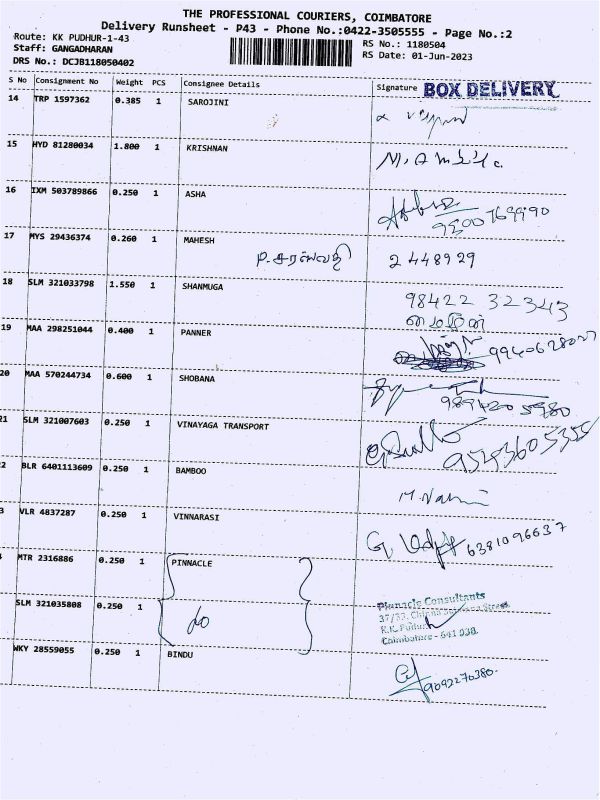 THE PROFESSIONAL COURIERS, COIMBATORE
Delivery Runsheet - P43 - Phone No.:0422-3505555 - Page No.:2
Route: KK PUDHUR-1-43
RS No.: 1180504
Staff: GANGADHARAN
RS Date: 01-Jun-2023
DRS No.: DCJB118050402
S No Consignment No Weight PCS Consignee Details Signature BOX DELIVERY
14 TRP 1597362 0.385 1 SAROJINI
15 HYD 81280034 1.800 1 KRISHNAN
16 IXM 503789866 0.250 1 ASHA
17 MYS 29436374 0.260 1 MAHESH
P. சரஸ்வதி 2448929
18 SLM 321033798 1.550 1 SHANMUGA
98422 32343
19 MAA 298251044 0.400 1 PANNER
20 MAA 570244734 0.600 1 SHOBANA
21 SLM 321007603 0.250 1 VINAYAGA TRANSPORT
9543605355
2 BLR 6401113609 0.250 1 BAMBOO
3 VLR 4837287 0.250 1 VINNARASI
6381096637
4 MTR 2316886 0.250 1 PINNACLE
Pinnacle Consultants
SLM 321035808 0.250 1 do
Coimbatore - 641 038.
WKY 28559055 0.250 1 BINDU
9092270380